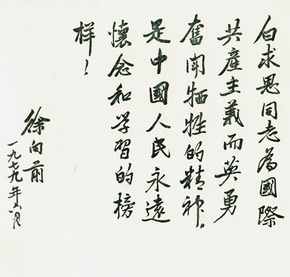 白求恩同志為國際
共產主義而英勇
奮鬥牺牲的精神，
是中國人民永遠
懷念和学習的榜
样！
徐向前
一九七九年六月